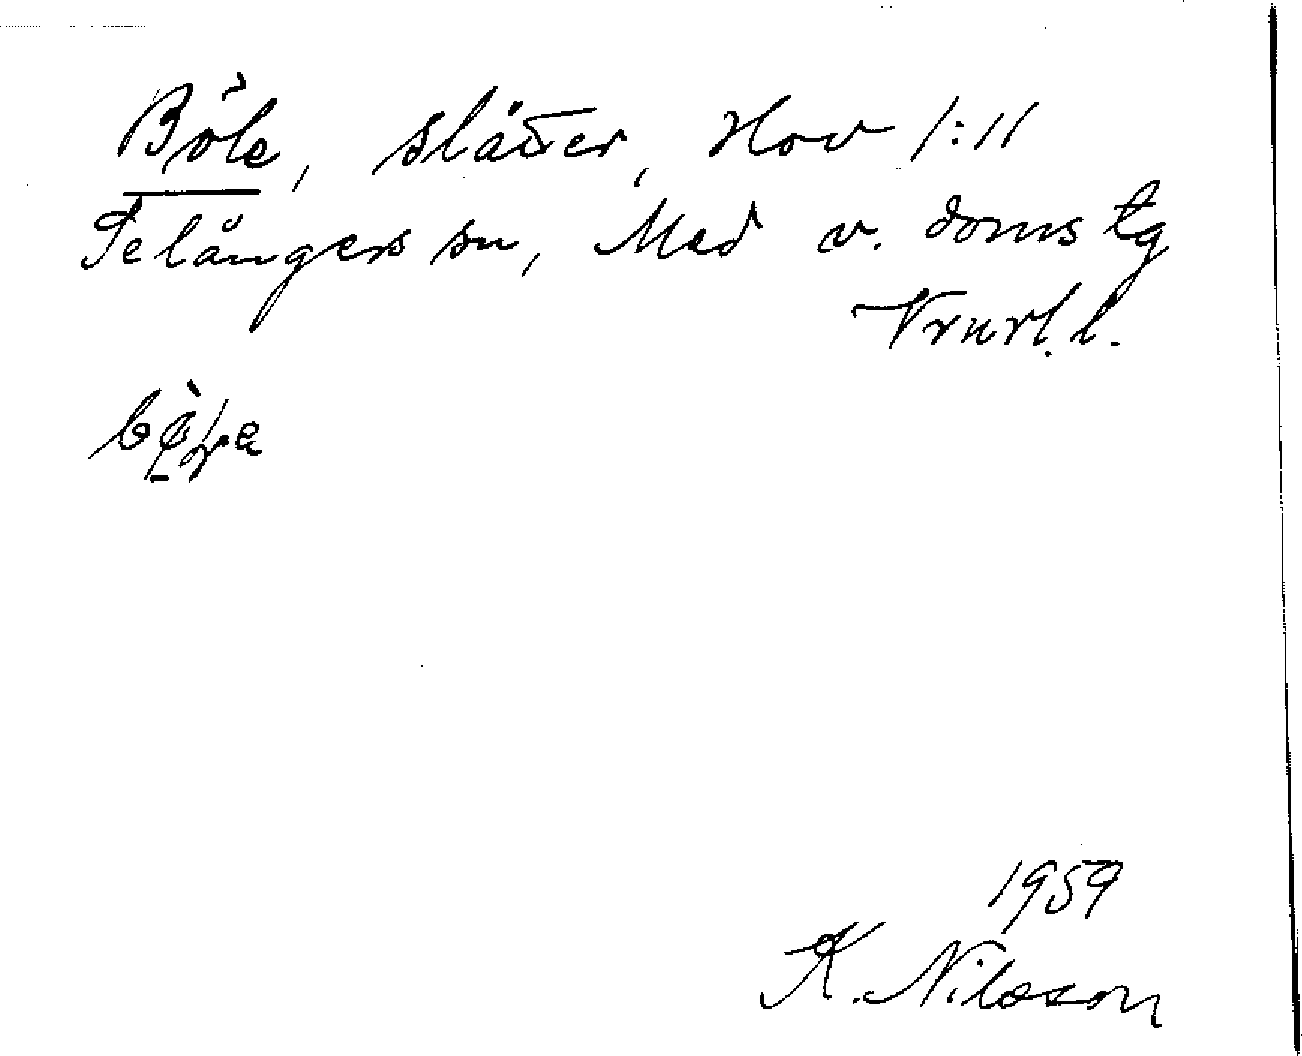 Böle, slåtter, Hov 1:11
Selångers sn, Med v. doms tg
Vrurl. l.
1959
K. Nilsson